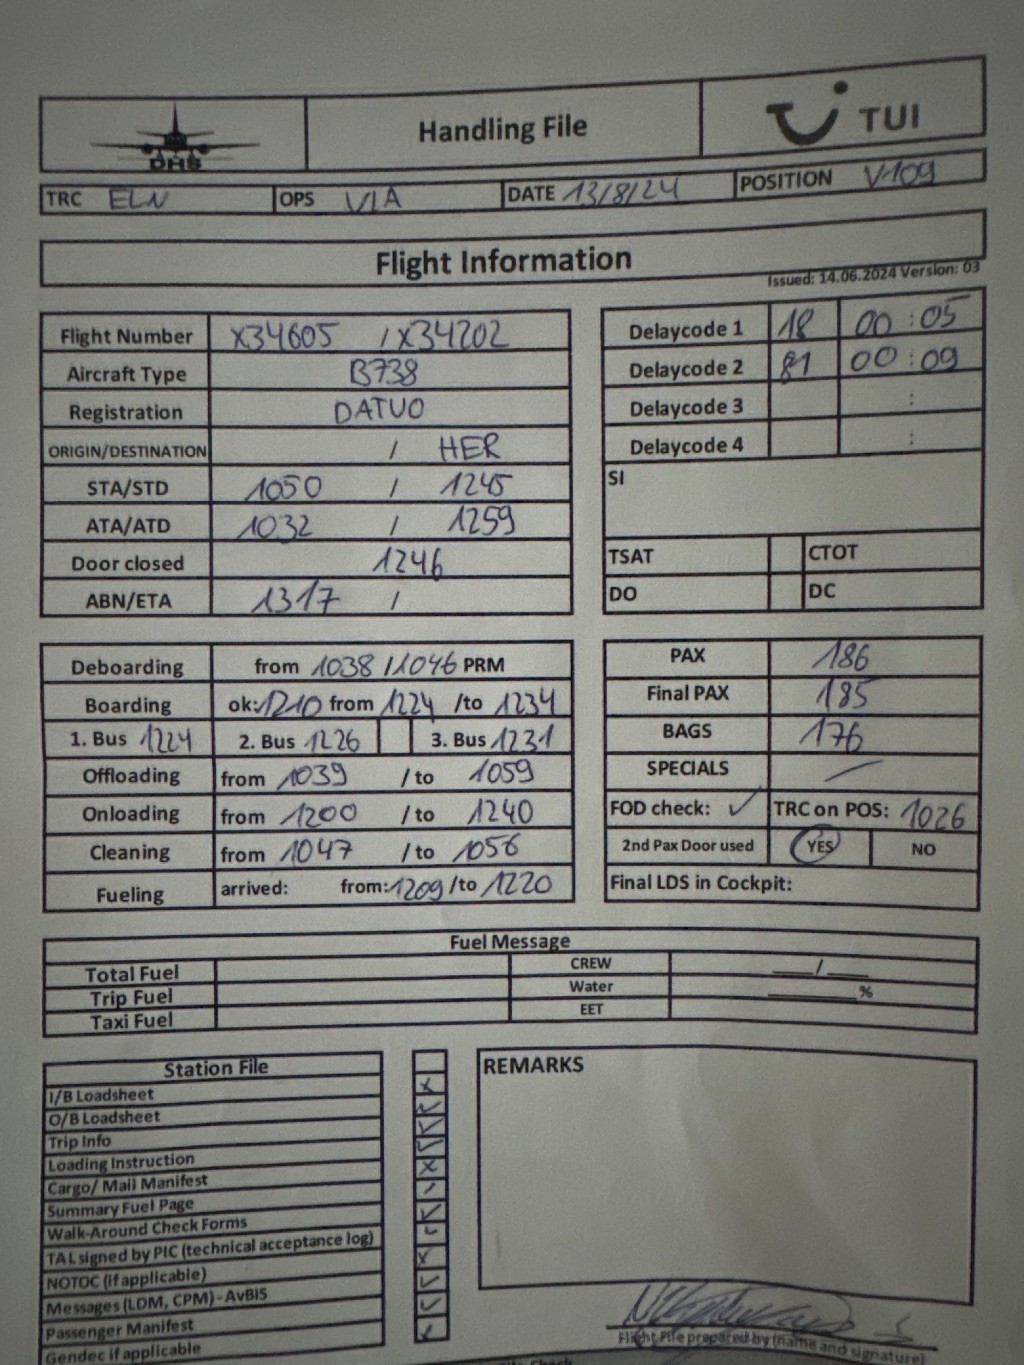 DHS Handling File TUI
TRC ELN OPS VIA DATE 13/8/24 POSITION V109
Flight Information
Issued: 14.06.2024 Version: 03
Flight Number X34605 / X34202
Aircraft Type B738
Registration DATUO
ORIGIN/DESTINATION / HER
STA/STD 1050 / 1245
ATA/ATD 1032 / 1259
Door closed 1246
ABN/ETA 1317 /
Delaycode 1 18 00:05
Delaycode 2 81 00:09
Delaycode 3 :
Delaycode 4 :
SI
TSAT CTOT
DO DC
Deboarding from 1038 / 1046 PRM
Boarding ok: 1210 from 1224 /to 1234
1. Bus 1224 2. Bus 1226 3. Bus 1231
Offloading from 1039 / to 1059
Onloading from 1200 / to 1240
Cleaning from 1047 / to 1056
Fueling arrived: from: 1209 /to 1220
PAX 186
Final PAX 185
BAGS 176
SPECIALS
FOD check: ✓ TRC on POS: 1026
2nd Pax Door used YES NO
Final LDS in Cockpit:
Fuel Message
Total Fuel CREW ___/___
Trip Fuel Water ______%
Taxi Fuel EET
Station File
I/B Loadsheet
O/B Loadsheet
Trip Info
Loading Instruction
Cargo/ Mail Manifest
Summary Fuel Page
Walk-Around Check Forms
TAL signed by PIC (technical acceptance log)
NOTOC (if applicable)
Messages (LDM, CPM) - AvBIS
Passenger Manifest
Gendec if applicable
REMARKS
Flight File prepared by (name and signature)
Check